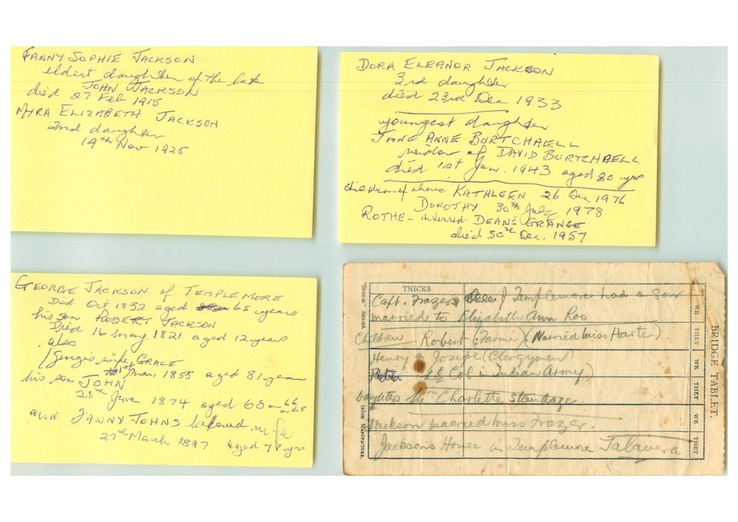 FANNY SOPHIE JACKSON
eldest daughter of the late
JOHN JACKSON
died 27 Feb 1915
MYRA ELIZABETH JACKSON
2nd daughter
19th Nov 1925
DORA ELEANOR JACKSON
3rd daughter
died 23rd Dec 1933
youngest daughter
JANE ANNE BURTCHAELL
widow of DAVID BURTCHAELL
died 1st Jan. 1943 aged 80 yrs
children of above KATHLEEN 26 Dec 1976
DOROTHY 30th July 1978
ROTHE - interred DEANS GRANGE
died 30th Dec. 1957
GEORGE JACKSON of TEMPLEMORE
Died Oct 1832 aged 65 years
his son ROBERT JACKSON
Died 16 May 1821 aged 12 years
also
Georges wife, GRACE
Mar. 1855 aged 81 years
his son JOHN
28th June 1874 aged 65 or 66 or 68
and FANNY JOHNS beloved wife
27th March 1897 aged 78 yrs
BRIDGE TABLET.
TRICKS
WE THEY WE THEY WE THEY
Capt. Frazer Templemore had a son
married to Elizabeth Ann Roo
Children Robert (Married Miss Harte).
Henry & Joseph (Clergymen)
Col in Indian Army)
Charlotte
Jackson married Miss Frazer.
Jackson's House in Templemore Talavera